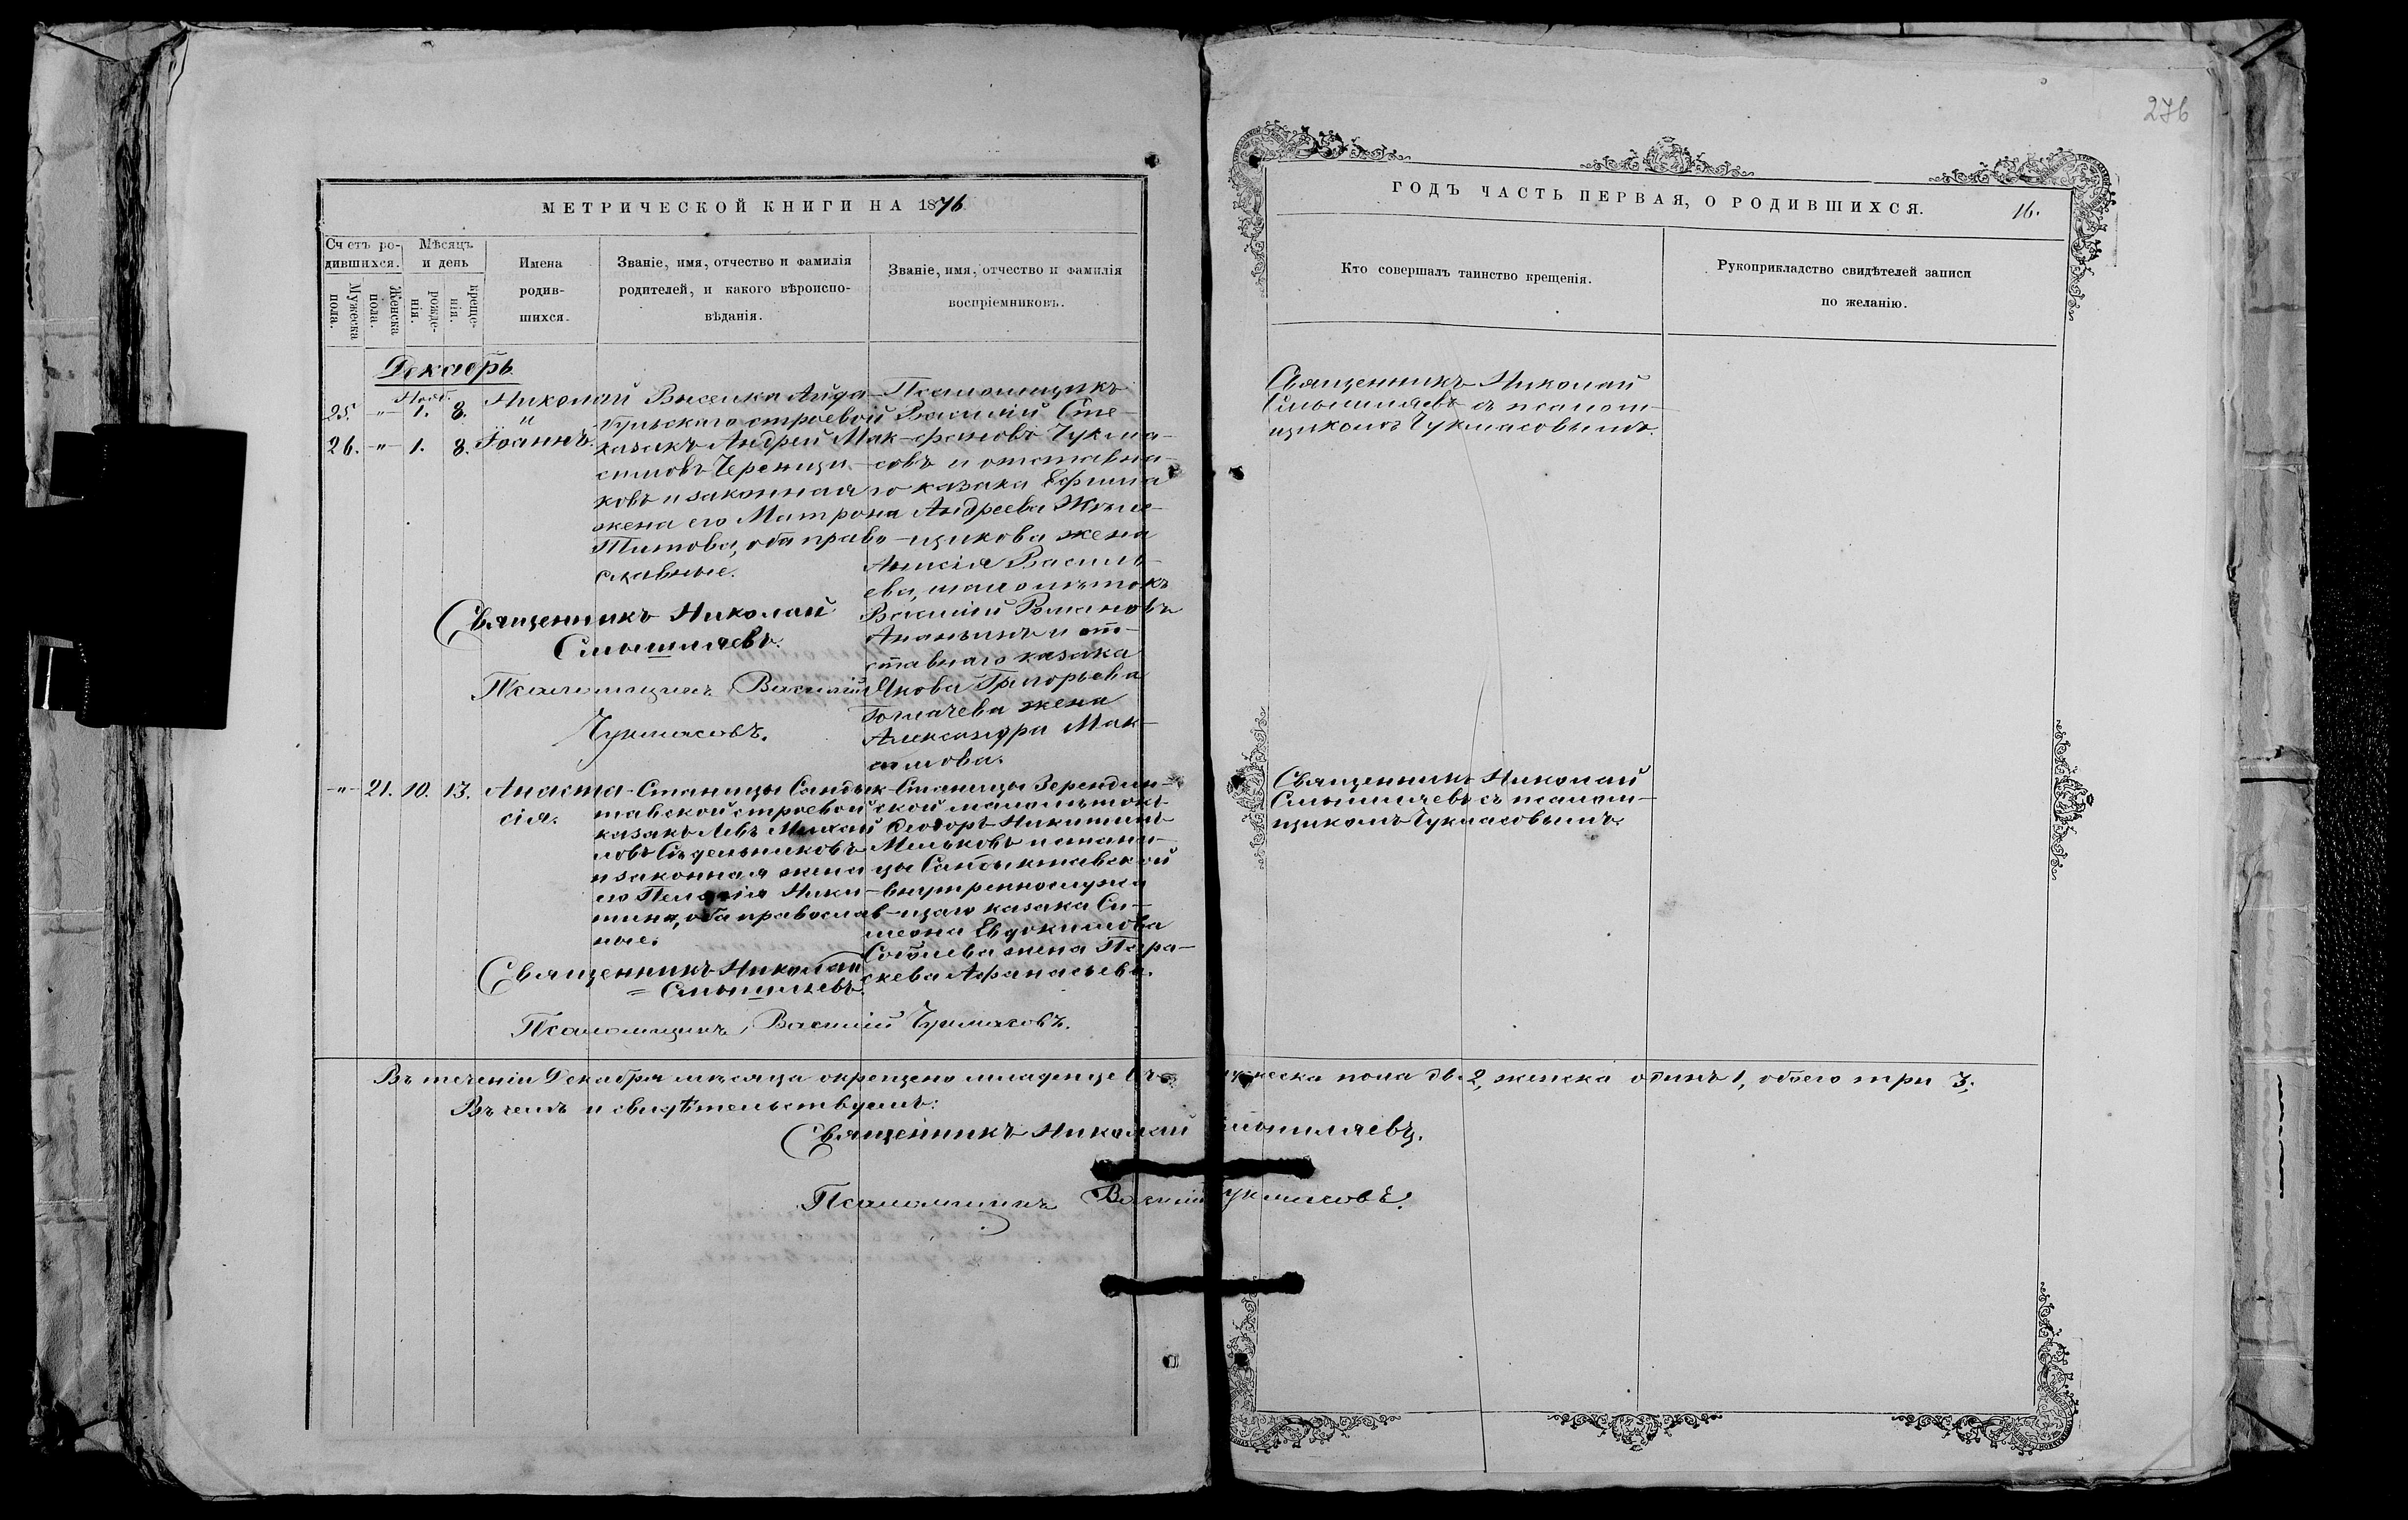 276
МЕТРИЧЕСКОЙ КНИГИ НА 1876
ГОДЪ ЧАСТЬ ПЕРВАЯ, О РОДИВШИХСЯ.
16.
Счетъ ро-
дившихся.
Мужеска
пола.
Женска
пола.
Мѣсяцъ
и день
рожде-
нія.
креще-
нія.
Имена
родив-
шихся.
Званіе, имя, отчество и фамилія
родителей, и какого вѣроиспо-
вѣданія.
Званіе, имя, отчество и фамилія
воспріемниковъ.
Кто совершалъ таинство крещенія.
Рукоприкладство свидѣтелей записи
по желанію.
Декабрь
Нояб.
25. -"- 1. 8.
26. -"- 1. 8.
Николай
и
Іоаннъ.
Выселка Айда-
бульскаго строевой
казакъ Андрей Мак-
симовъ Черенщи-
ковъ и законная
жена его Матрона
Титова, оба право-
славные.
Псаломщикъ
Василій Сте-
фановъ Чукма-
совъ и отставна-
го казака Ефима
Андреева
щикова жена
Анисія Василь-
ева, малолѣтокъ
Василій Романовъ
Ананьинъ и от-
ставнаго казака
Якова Григорьева
жена
Александра Мак-
симова.
Священникъ Николай
Смышляевъ съ псалом-
щикомъ Чукмасовымъ.
Священникъ Николай
Смышляевъ.
Псаломщикъ Василій
Чукмасовъ.
-"- 21. 10. 13.
Анаста-
сія.
Станицы Сандык-
тавской строевой
казакъ Левъ Михай
ловъ Сѣдельниковъ
и законная жена
его Пелагія Ники-
тина, оба православ-
ные.
Станицы Зерендин-
ской малолѣтокъ
Ѳеодоръ Никитинъ
Мильковъ и стани-
цы Сандыктавской
внутреннослужа
щаго казака Си-
меона Евдокимова
Соболева жена Пара-
скева Афанасьева.
Священникъ Николай
Смышляевъ съ псалом-
щикомъ Чукмасовымъ.
Священникъ Николай
Смышляевъ.
Псаломщикъ Василій Чукмасовъ.
Въ теченіи Декабря мѣсяца окрещено младенцевъ: мужеска пола дв. 2, женска одинъ 1, обоего три 3;
Въ чемъ и свидѣтельствуемъ:
Священникъ Николай Смышляевъ.
Псаломщикъ Василій Чукмасовъ.